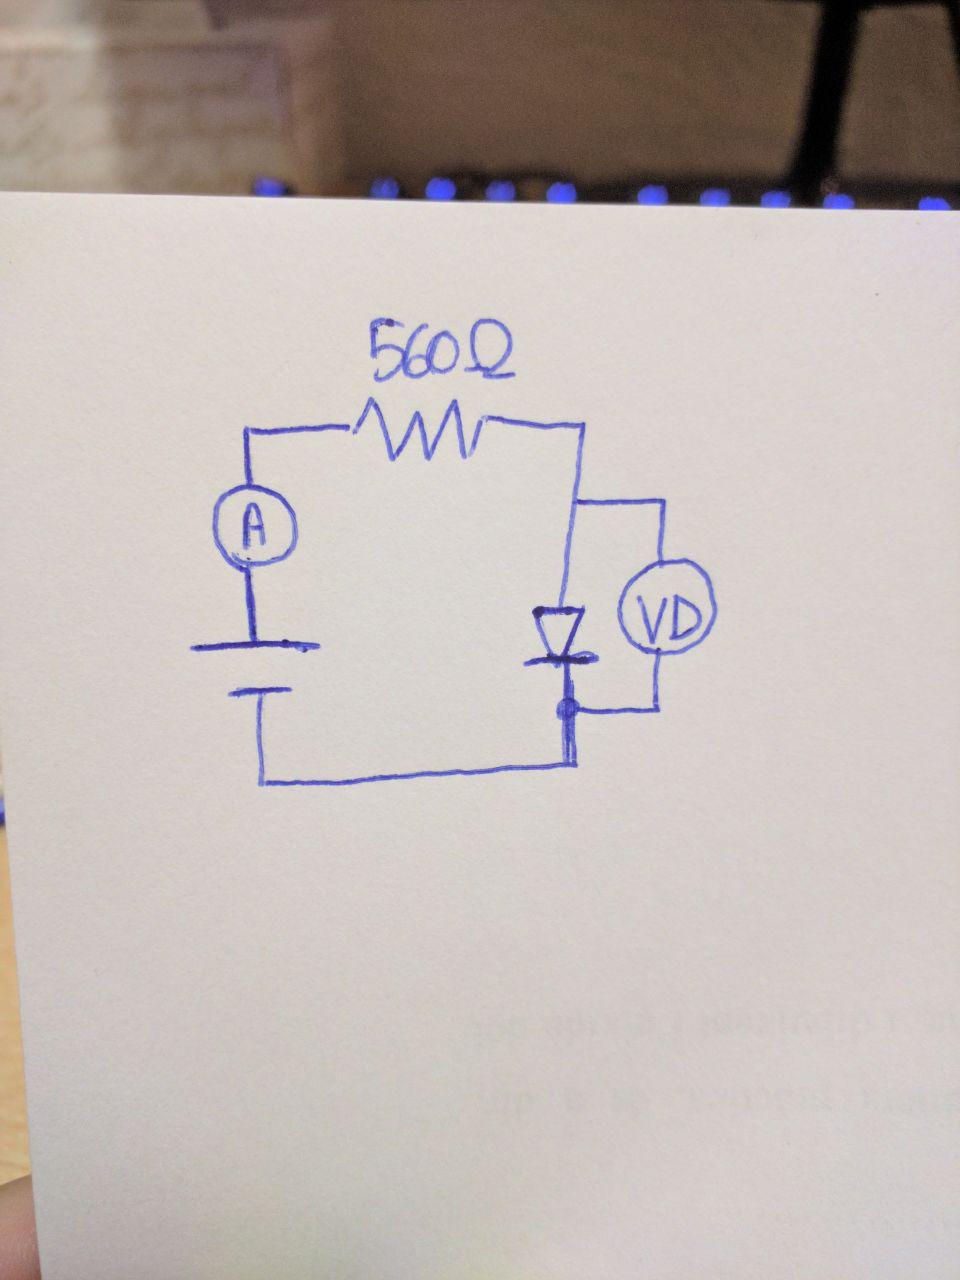 560Ω
A
VD